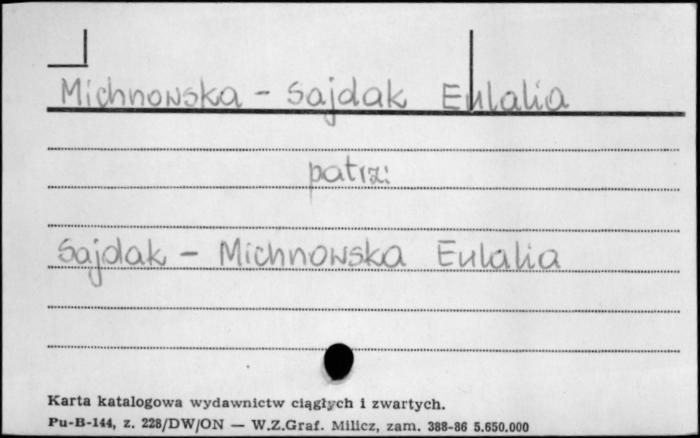 Michnowska - Sajdak Eulalia
patrz:
Sajdak - Michnowska Eulalia
Karta katalogowa wydawnictw ciągłych i zwartych.
Pu-B-144, z. 228/DW/ON — W.Z.Graf. Milicz, zam. 388-86 5.650.000